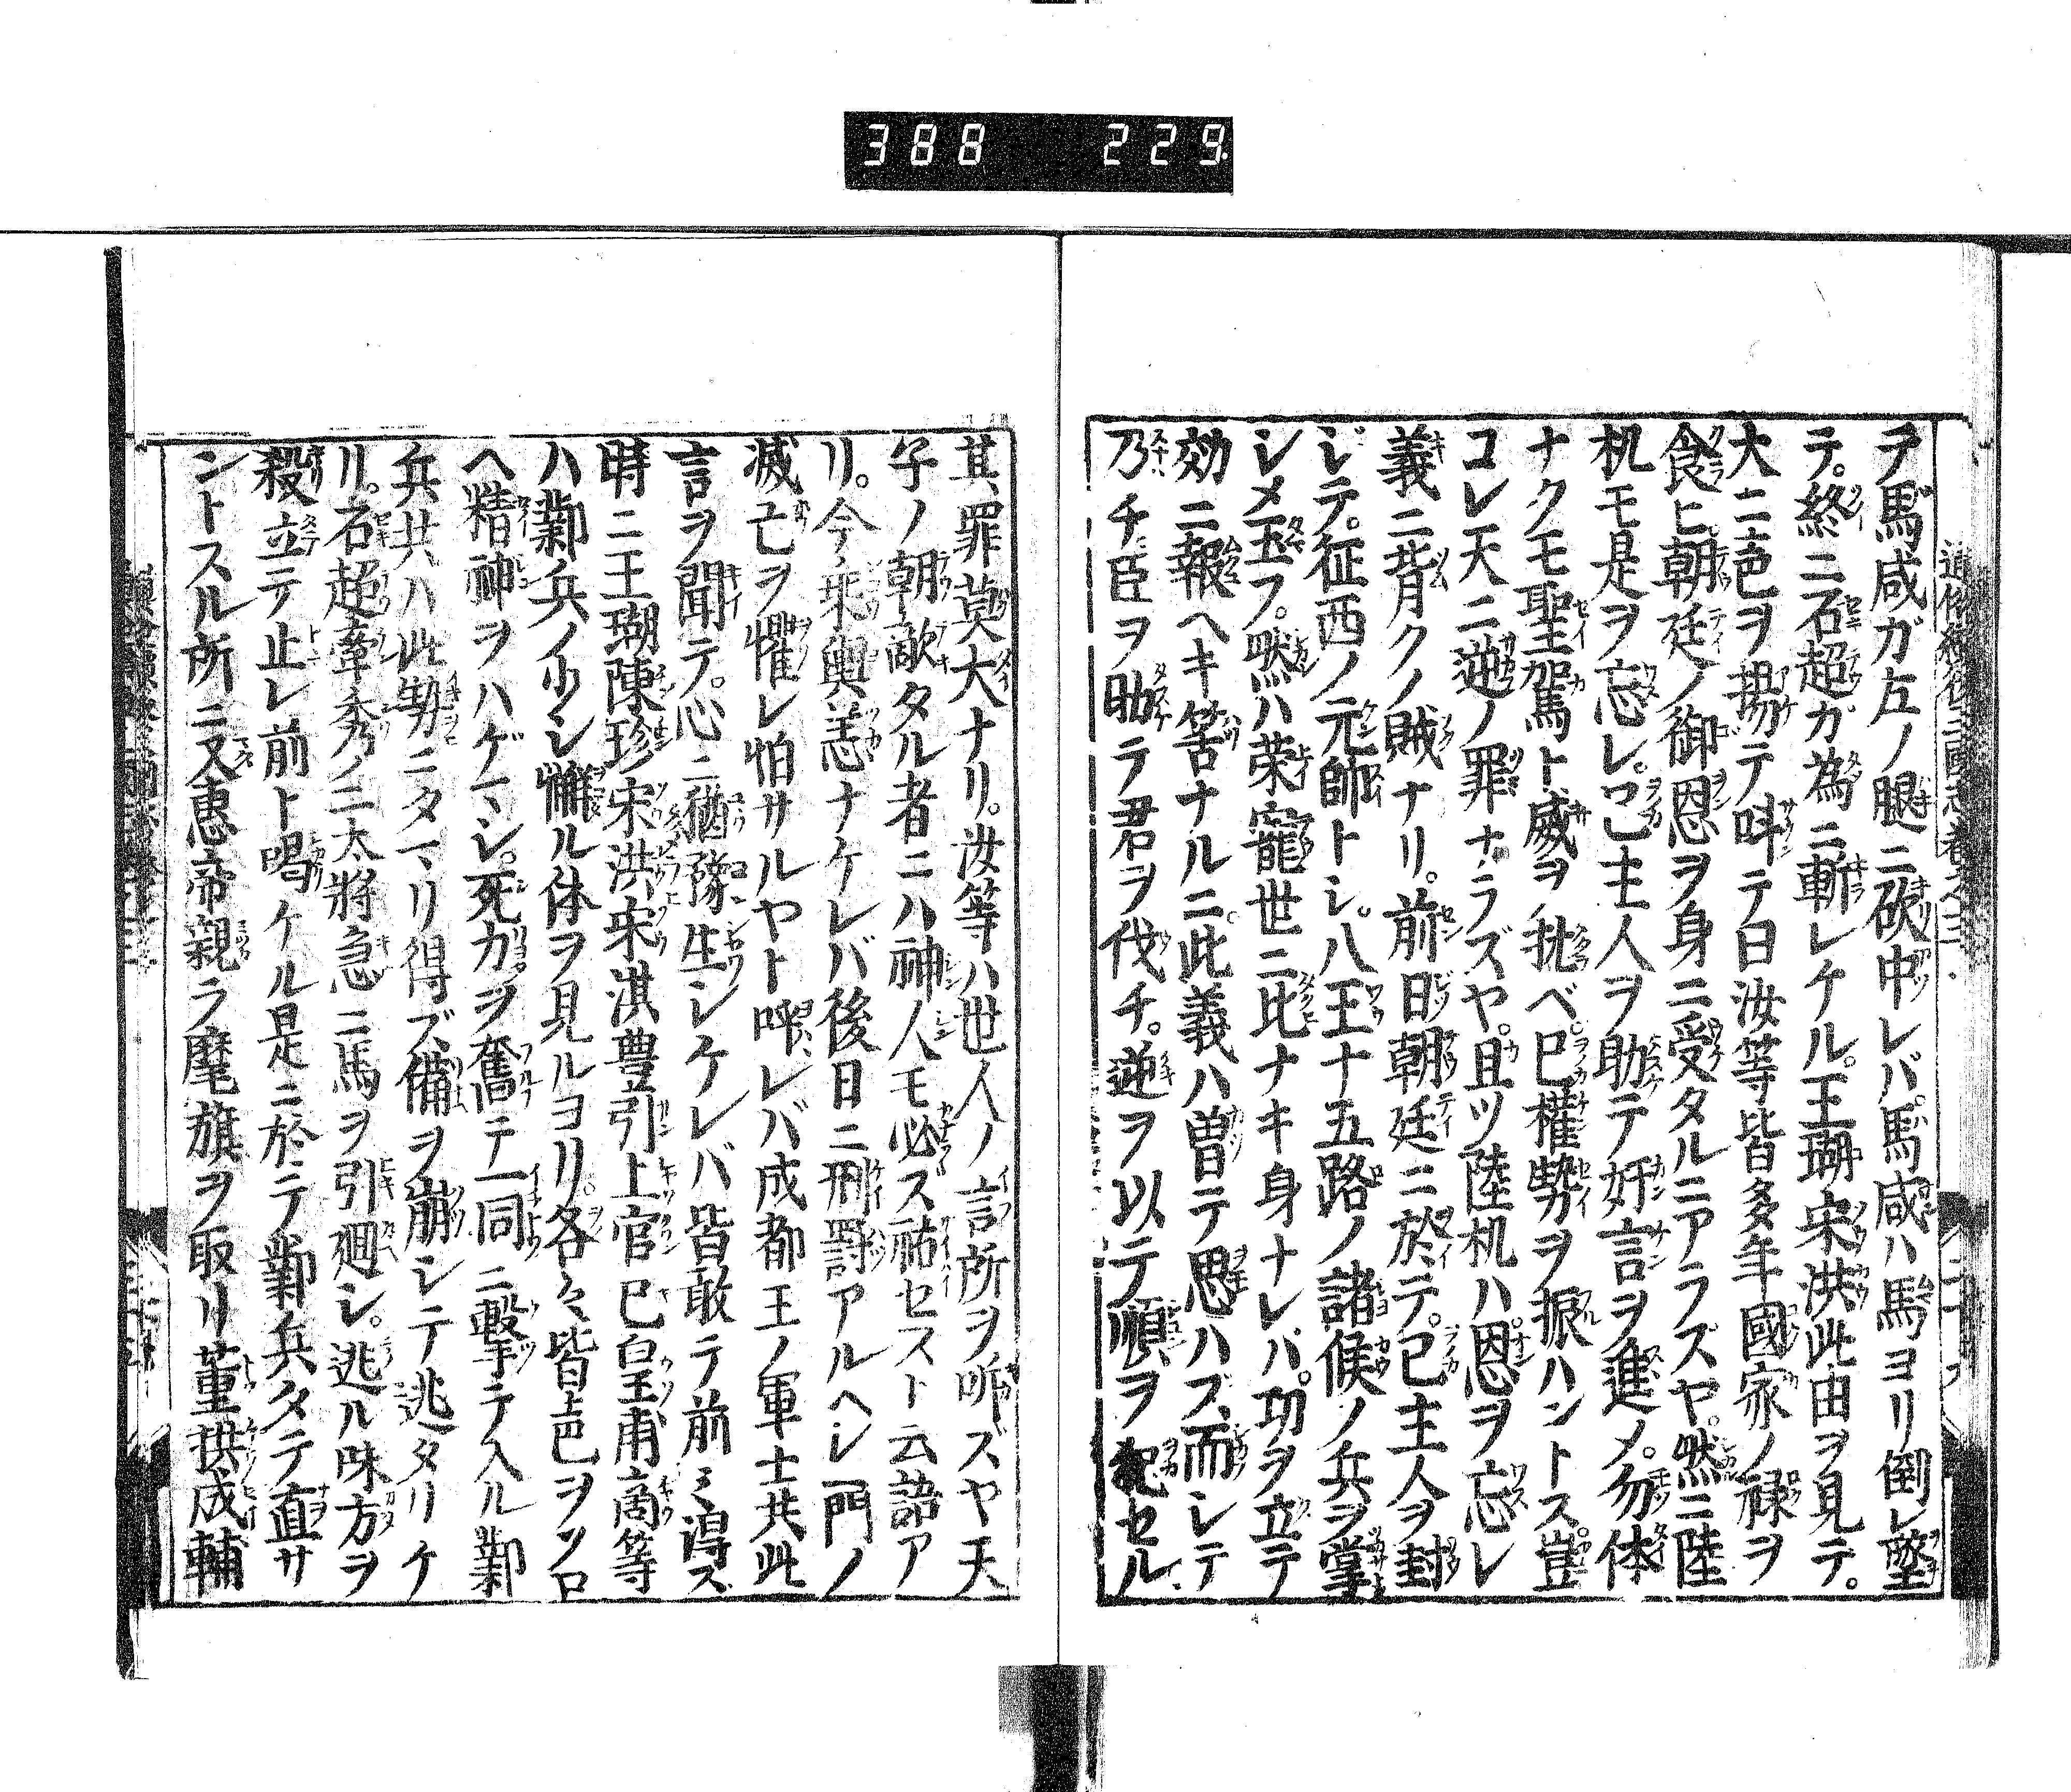 388 229
テ馬咸ガ左ノ腿ニ砍中レバ馬咸ハ馬ヨリ倒レ墜
テ。終ニ石超ガ為ニ斬レケル。王瑚宋洪此由ヲ見テ。
大ニ色ヲ揚テ呌テ曰汝等皆多年國家ノ禄ヲ
食ヒ。朝廷ノ御恩ヲ身ニ受タルニアラズヤ。然ニ陸
机モ是ヲ忘レ。己主人ヲ助テ奸言ヲ進メ。勿体
ナクモ聖駕ト威ヲ批ベ。己權勢ヲ振ハントス。豈
コレ天ニ逆ノ罪ナラズヤ。且ツ陸机ハ。恩ヲ忘レ
義ニ背クノ賊ナリ。前日朝廷ニ於テ。己主人ヲ封
ジテ。征西ノ元帥トシ。八王十五路ノ諸候ノ兵ヲ掌
シメ玉フ。然ハ栄寵世ニ比ナキ身ナレバ。功ヲ立テ
効ニ報ヘキ筈ナルニ。此義ハ曽テ思ハズ、而シテ
乃チ臣ヲ助テ君ヲ伐チ。逆ヲ以テ順ヲ犯セル
其罪莫大ナリ。汝等ハ世人ノ言所ヲ听スヤ天
子ノ朝敵タル者ニハ神人モ必ス祐セスト云語ア
リ。今乗輿恙ナケレバ後日ニ刑罸アルヘシ一門ノ
滅亡ヲ懼レ怕サルヤト呼レバ成都王ノ軍士共此
言ヲ聞テ。心ニ猶豫生シケレバ皆敢テ前ミ得ズ
時ニ王瑚陳珍宋洪宋淇豊引上官已皇甫商等
ハ鄴兵ノ少シ懈ル体ヲ見ルヨリ。各々皆色ヲソロ
ヘ精神ヲハゲマシ。死力ヲ奮テ一同ニ擊テ入ル鄴
兵共ハ此勢ニタマリ得ズ、備ヲ崩シテ逃タリケ
リ。石超牽秀ノ二太將急ニ馬ヲ引廻シ。逃ル味方ヲ
殺立テ止レ前ト喝ケル是ニ於テ鄴兵タテ直サ
ントスル所ニ又惠帝親ラ麾旗ヲ取リ董拱成輔